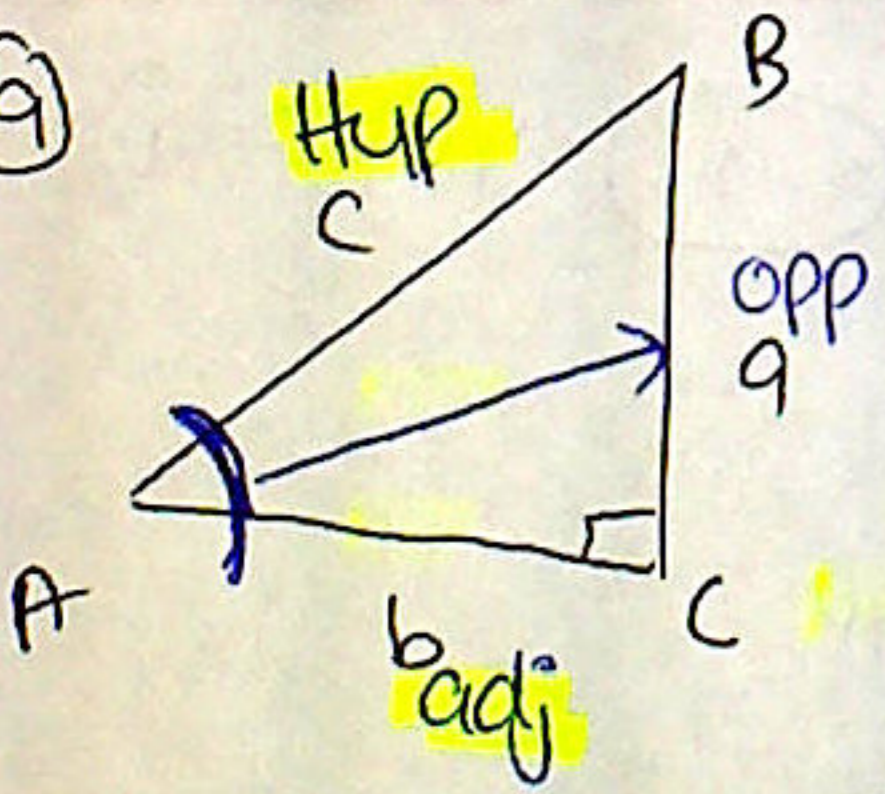 a
B
Hyp
c
opp
a
A
b
adj
C